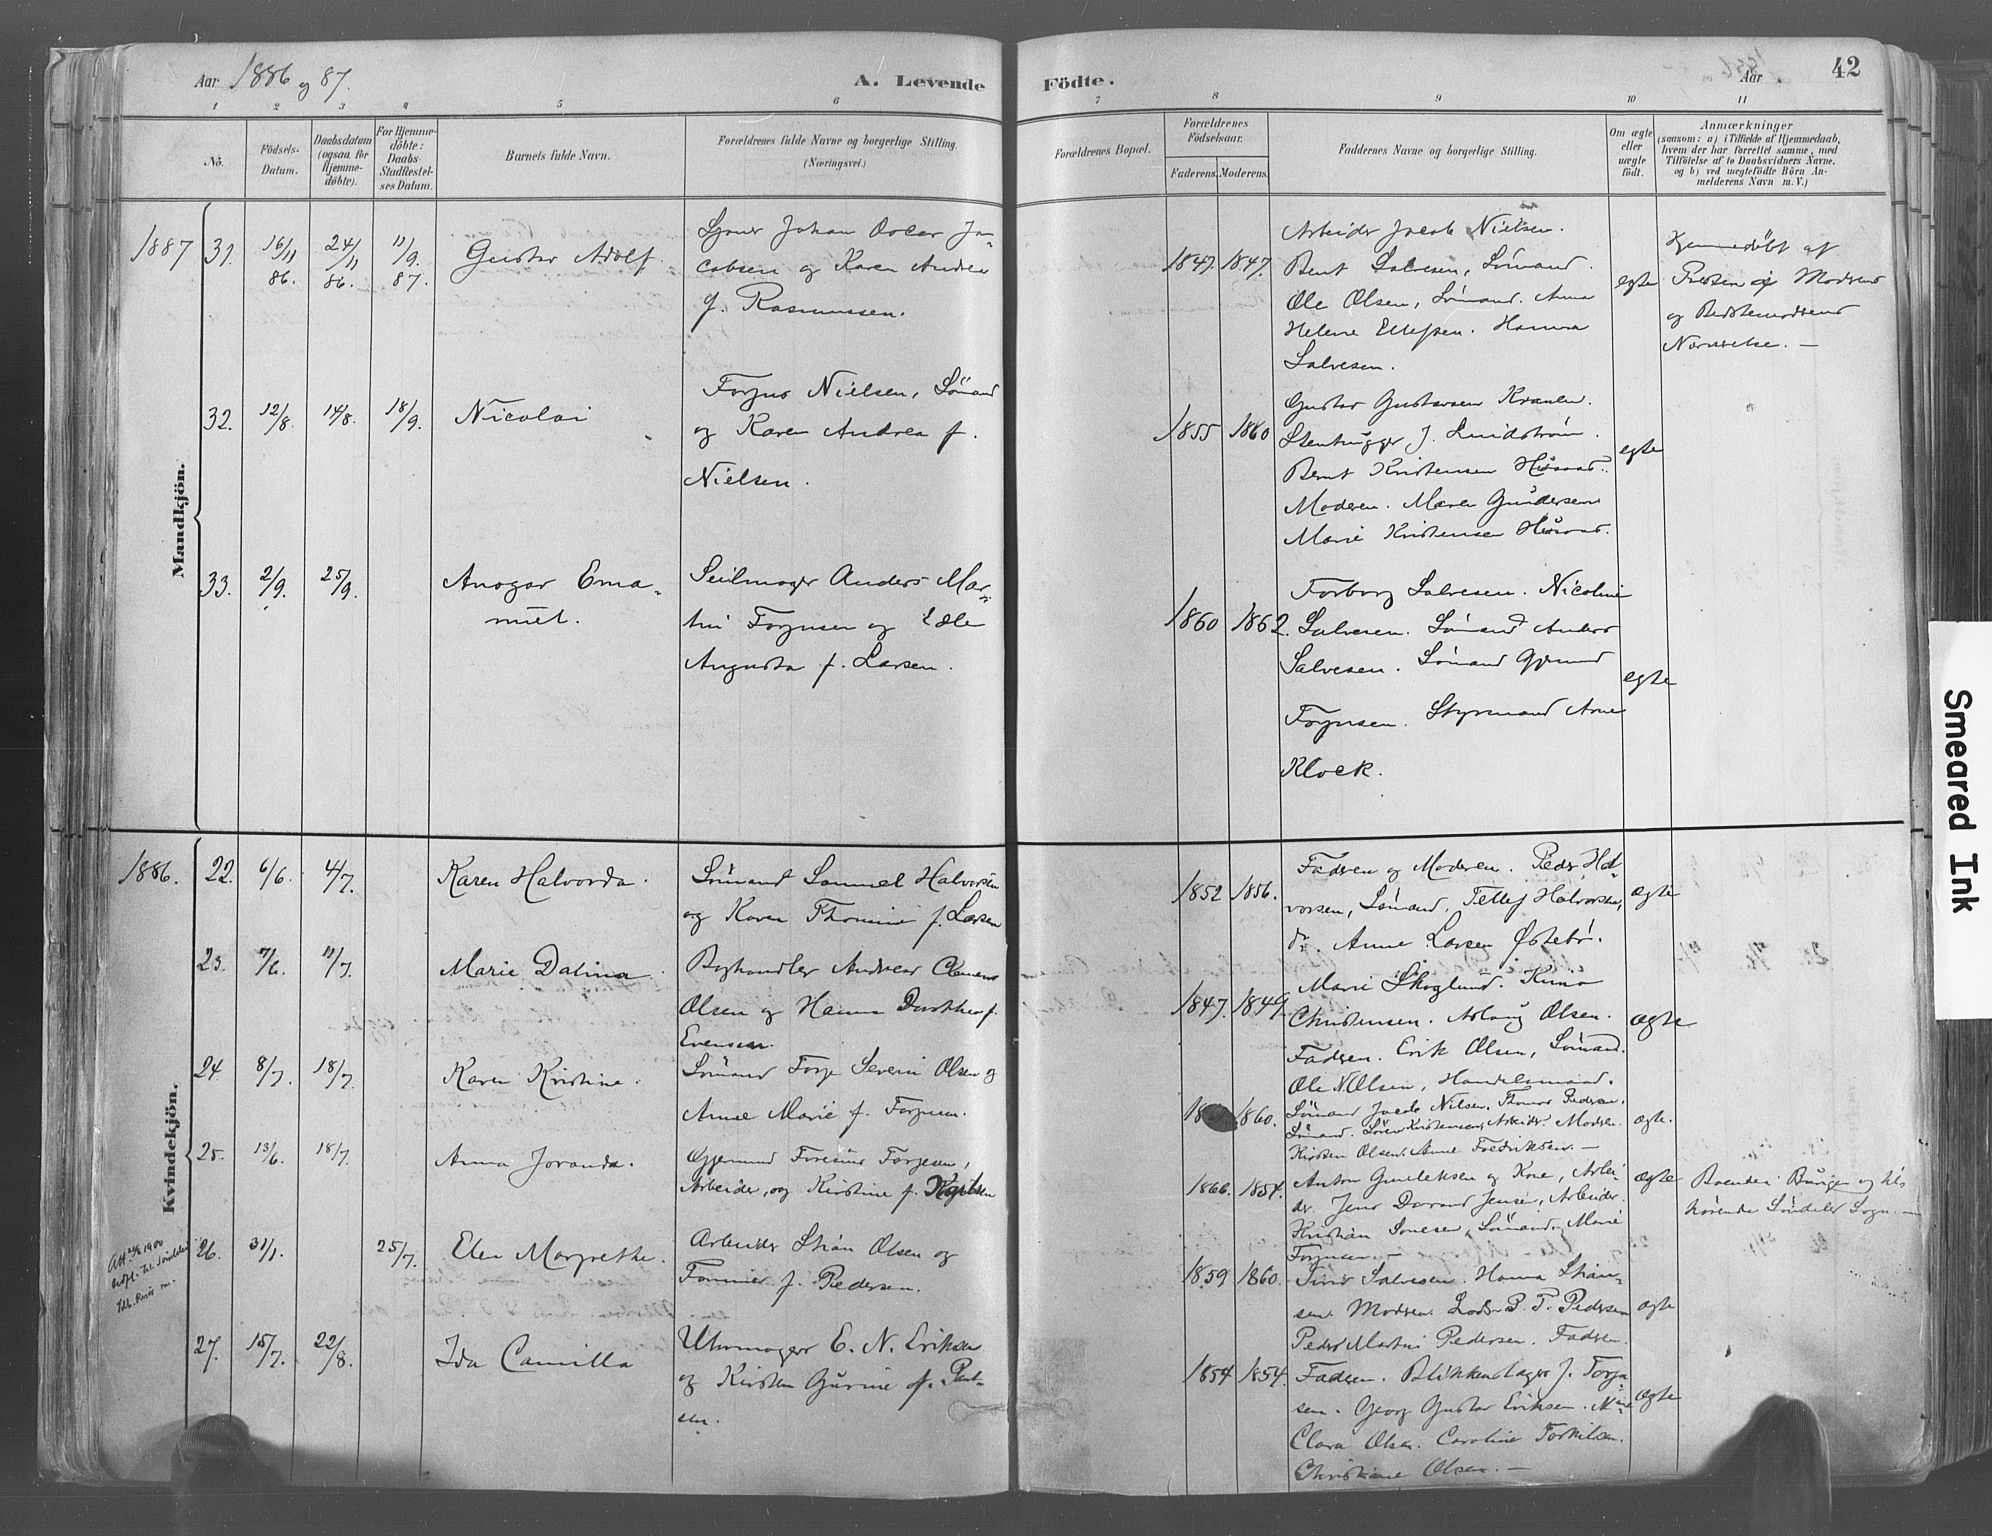 Aar 1886 og 87.
A. Levende Födte.
Aar
42
1 2 3 4 5 6 7 8 9 10 11
No.
Födsels-
Datum.
Daabsdatum
(ogsaa for
Hjemme-
döbte).
For Hjemme-
döbte:
Daabs-
Stadfæstel-
ses Datum.
Barnets fulde Navn.
Forældrenes fulde Navne og borgerlige Stilling.
(Næringsvei.)
Forældrenes Bopæl.
Forældrenes
Födselsaar.
Faderens. Moderens.
Faddernes Navne og borgerlige Stilling.
Om ægte
eller
uægte
födt.
Anmærkninger
(saasom: a) i Tilfælde af Hjemmedaab,
hvem der har forrettet samme, med
Tilföielse af to Daabsvidners Navne.
og b) ved uægtefödte Börn An-
melderens Navn m. V.)
Mandkjön.
1887
31.
16/11 86.
24/11 86.
11/9. 87.
Gustav Adolf.
Johan Oscar Ja-
cobsen og Karen Andrea
f. Rasmussen.
1847. 1847.
Arbeider Jacob Nielsen.
Bent Salvesen, Sömand.
Ole Olsen, Sömand. Anna
Helene Ellefsen. Hanna
Salvesen.
egte
Hjemmedöbt af
Præsten i Moderens
og Bedstemoderens
Nærværelse. —
32.
12/8.
14/8.
18/9.
Nicolai
Torjus Nielsen, Sömand
og Karen Andrea f.
Nielsen.
1855 1860
Gustav Gustavsen
Stenhugger J. Lundström.
Bernt Kristensen
Moderen. Maren Gundersen
Marie Kristensen
egte
33.
2/9.
25/9.
Ansgar Ema-
nuel.
Seilmager Anders Mar-
tin Torjusen og Edle
Augusta f. Larsen.
1860 1862.
Torborg Salvesen. Nicoline
Salvesen. Sömand Anders
Salvesen. Sömand Gjerund
Torjusen. Styrmand Arne
Klock.
egte
Kvindekjön.
1886.
22.
6/6.
4/7.
Karen Halvorda.
Sömand Samuel Halvorsen
og Karen Thomine f. Larsen
1852 1856.
Faderen og Moderen. Peder Hal-
vorsen, Sömand. Tellef Halvorsen,
do. Anne Larsen Östebö.
ægte
23.
7/6.
11/7.
Marie Dalina.
Boghandler Andreas Clemens
Olsen og Hanna Dorthea f.
Evensen.
1847. 1849.
Marie Skoglund.
Christensen. Aslaug Olsen.
Faderen. Erik Olsen, Sömand.
Ole N. Olsen, Handelsmand.
ægte
24
8/7.
18/7.
Karen Kristine.
Sömand Torje Severin Olsen og
Anne Marie f. Torjusen.
1860.
Sömand Jacob Nilsen. Thomas Pedersen,
Sömand. Sören Kristensen, Arbeider. Moderen.
Kirsten Olsen. Anne Fredriksen. —
ægte.
25.
13/6.
18/7.
Anna Joranda.
Gjermund Torjesen,
Arbeider, og Kirstine f.
1866. 1854.
Anton Gunleksen og Kone, Arbei-
der. Jens Jensen, Arbeider
Kristian Sömand. Marie
Torjusen. —
ægte
Boende i og til-
hörende Söndeled Sogn. —
Att. 1900
26.
31/1.
25/7.
Elen Margrethe.
Arbeider Stian Olsen og
Tomine f. Pedersen.
1859 1860.
Salvesen. Hanna Stian-
sen. Moderen. Lods P. T. Pedersen
Peder Martin Pedersen. Faderen.
ægte
27.
15/7.
22/8.
Ida Camilla
Uhrmager E. N. Eriksen
og Kirsten Gurine f.
sen.
1854 1854.
Faderen. Blikkenslager J. Torja-
sen. Georg Gustav Eriksen.
Clara Olsen. Caroline Torkilsen.
Christiane Olsen. —
ægte
Smeared Ink